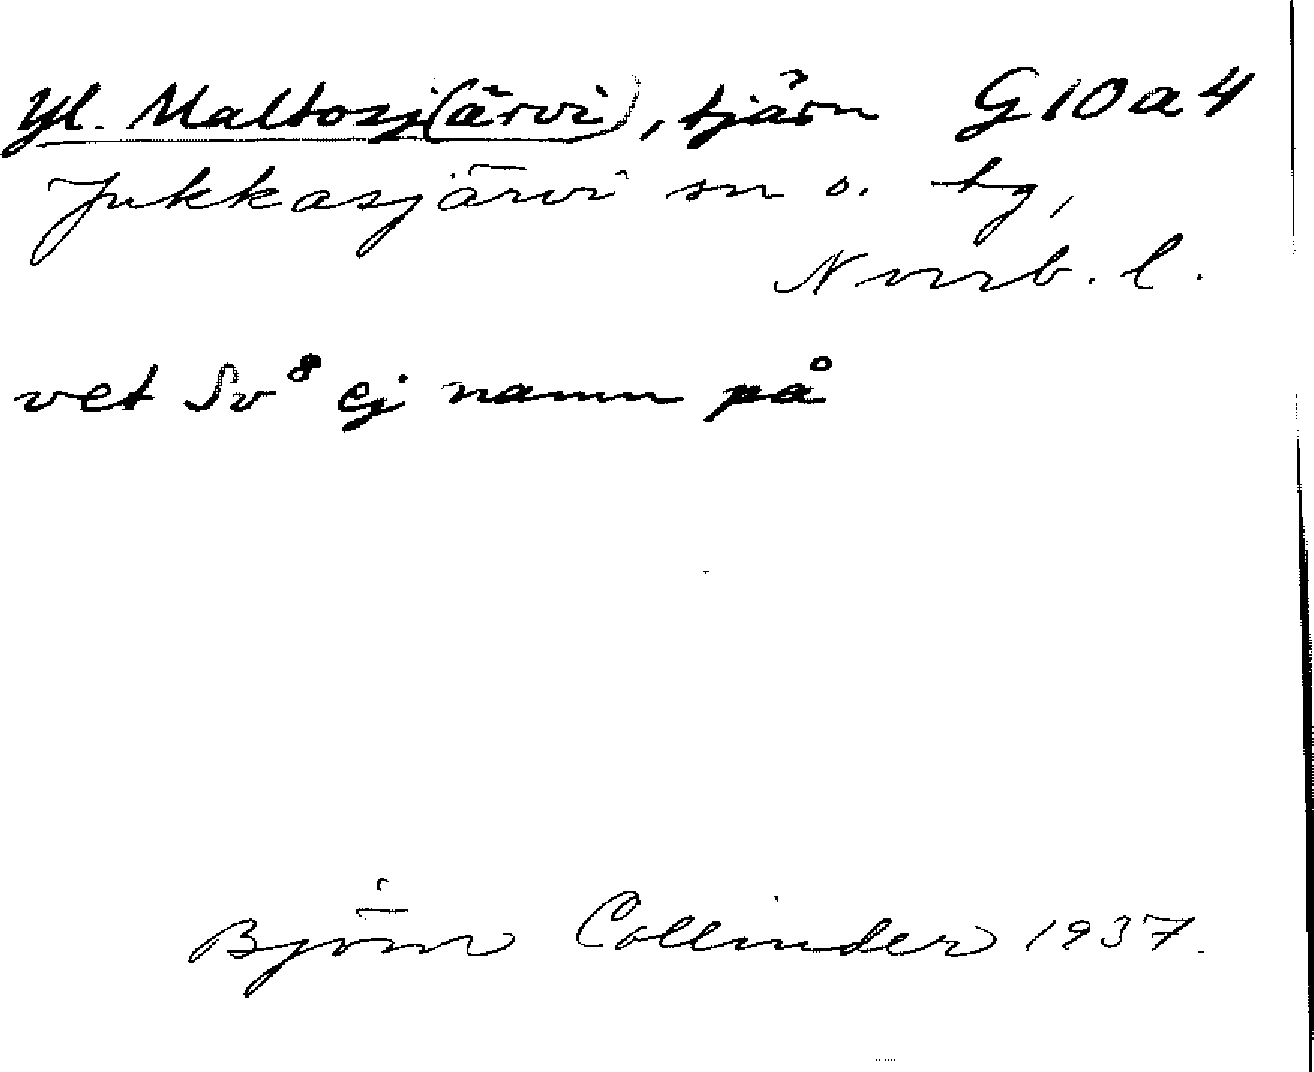 Yl. Maltosj(ärvi), tjärn G10a4
Jukkasjärvi sn o. tg,
Norrb. l.
vet Sv⁸ ej namn på
Björn Collinder 1937.